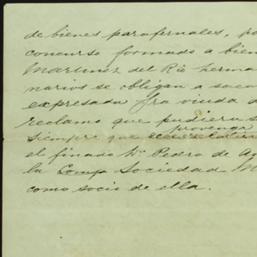 de bienes parafernales, po
concurso formado a bien
Martinez del Rio herma
narios se obligan a sacar
expresada Sra viuda d
reclamo que pudiera s
provenga
siempre que
el finado Dn Pedro de Ag
la Comp Sociedad M
como socio de ella.